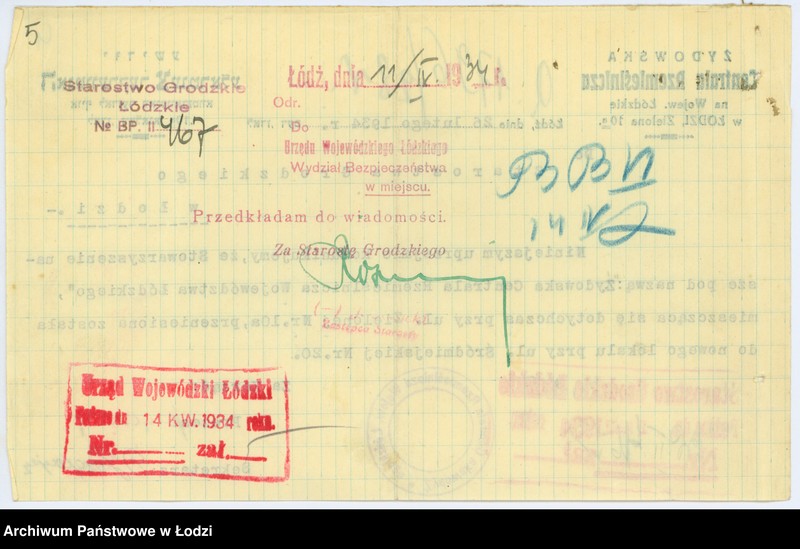 5
Starostwo Grodzkie
Łódzkie
№ BP. II 4/67
Łódź, dnia 11/IV 1934 r.
Odr.
Do
Urzędu Wojewódzkiego Łódzkiego
Wydział Bezpieczeństwa
w miejscu.
BB VI
14 IV
Przedkładam do wiadomości.
Za Starostę Grodzkiego
Zastępca Starosty
Urząd Wojewódzki Łódzki
Podano dn 14 KW. 1934 roku.
Nr. zał.
ŻYDOWSKA
Centrala Rzemieślnicza
na Wojew. Łódzkie
w ŁODZI, Zielona 10a.
Łódź, dnia 26 lutego 1934 r.
Grodzkiego
w Łodzi.-
Niniejszym, że Stowarzyszenie na-
sze pod nazwą: "Żydowska Centrala Rzemieślnicza Województwa Łódzkiego",
mieszcząca się dotychczas przy ul. Zielonej Nr. 10a, przeniesiona została
do nowego lokalu przy ul. Śródmiejskiej Nr. 20.
Sekretarz
Starostwo Grodzkie Łódzkie
Archiwum Państwowe w Łodzi